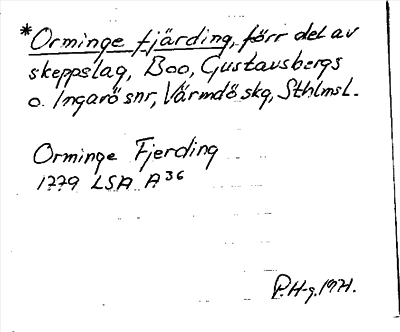 *Orminge fjärding, förr del av
skeppslag, Boo, Gustavsbergs
o. Ingarö snr, Värmdö skg, Sthlmsl.
Orminge Fjerding
1779 LSA A36
P.H-g. 1971.